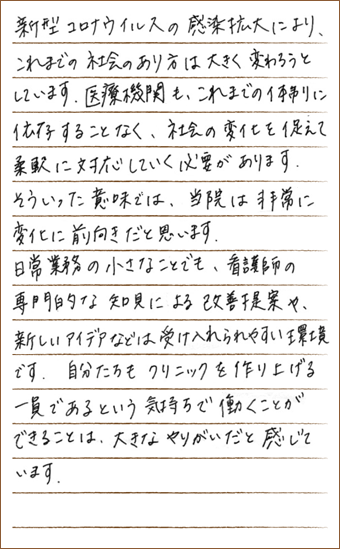 新型コロナウイルスの感染拡大により、
これまでの社会のあり方は大きく変わろうと
しています. 医療機関も、これまでの体制に
依存することなく、社会の変化を捉えて
柔軟に対応していく必要があります.
そういった意味では、当院は非常に
変化に前向きだと思います.
日常業務の小さなことでも、看護師の
専門的な知見による改善提案や、
新しいアイデアなどは受け入れられやすい環境
です. 自分たちもクリニックを作り上げる
一員であるという気持ちで働くことが
できることは、大きなやりがいだと感じて
います.